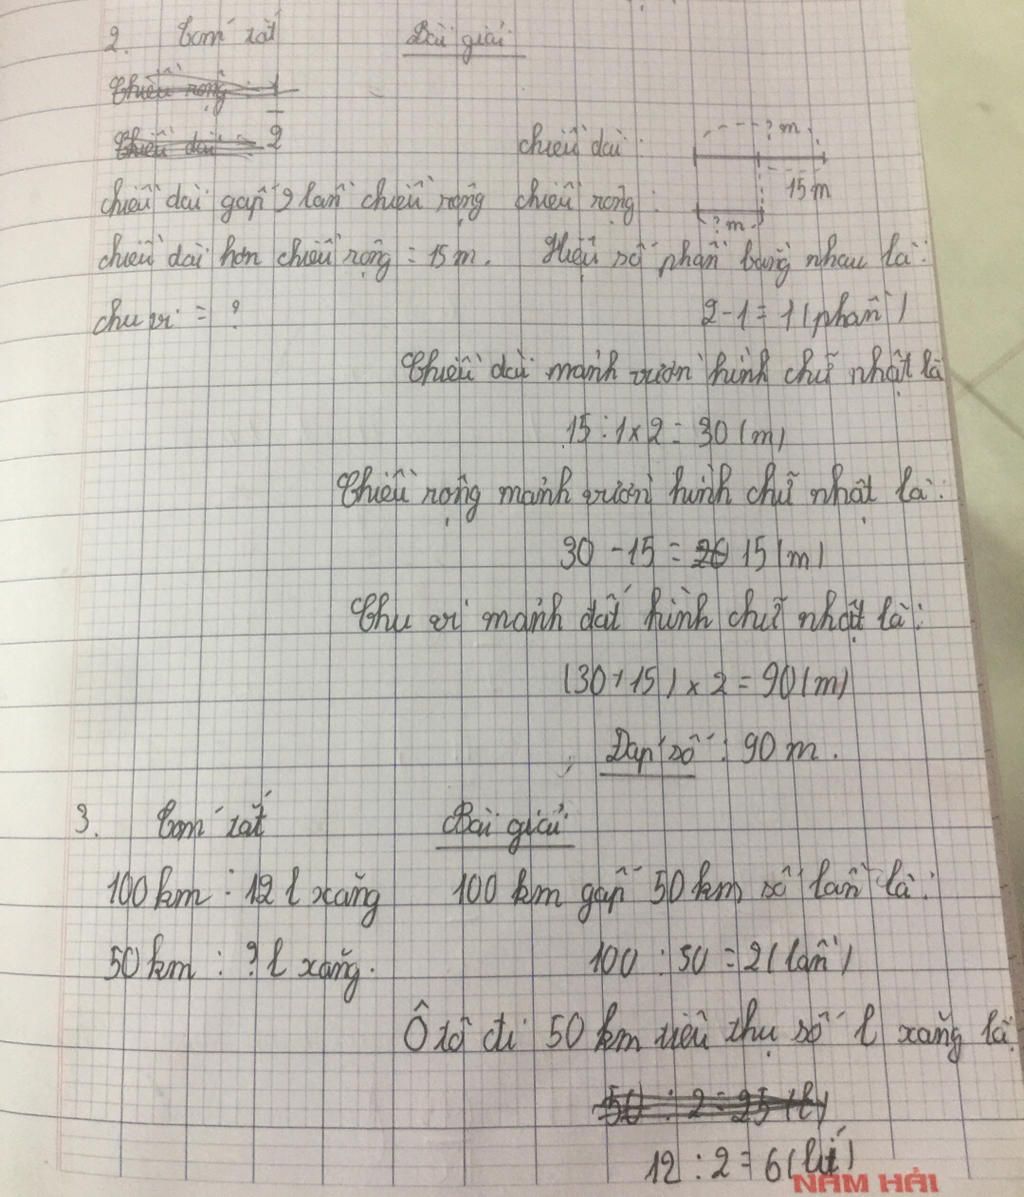 2. Tóm tắt
Bài giải
Chiều rộng 1
Chiều dài 2
chiều dài : ? m
15 m
chiều dài gấp 2 lần chiều rộng
chiều rộng :
? m
chiều dài hơn chiều rộng = 15 m.
Hiệu số phần bằng nhau là:
chu vi = ?
2-1 = 1 (phần)
Chiều dài mảnh vườn hình chữ nhật là
15 : 1 x 2 = 30 (m)
Chiều rộng mảnh vườn hình chữ nhật là:
30 - 15 = 15 (m)
Chu vi mảnh đất hình chữ nhật là:
(30 + 15) x 2 = 90 (m)
Đáp số : 90 m.
3. Tóm tắt
Bài giải
100 km : 12 l xăng
100 km gấp 50 km số lần là:
50 km : ? l xăng.
100 : 50 = 2 (lần)
Ô tô đi 50 km tiêu thụ số l xăng là
50 : 2 = 25 (l)
12 : 2 = 6 (lít)
NAM HẢI